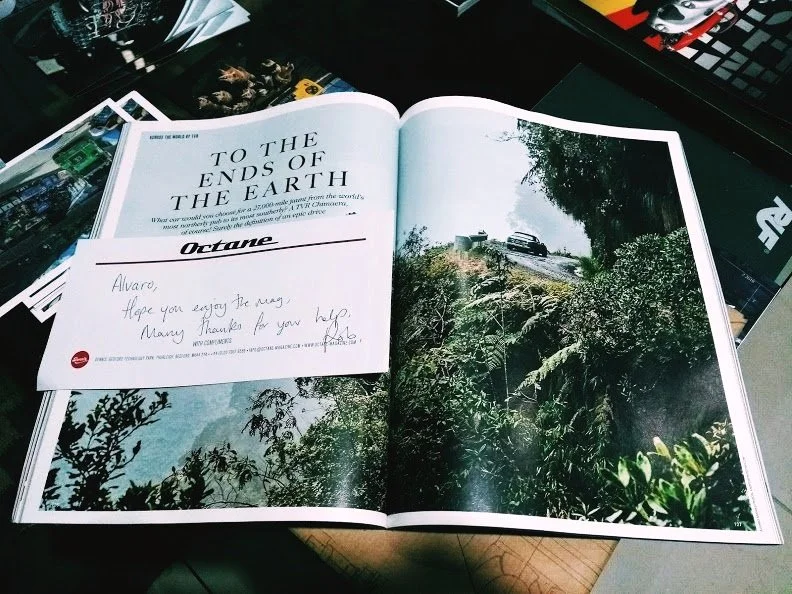 ACROSS THE WORLD BY TVR
TO THE
ENDS OF
THE EARTH
What car would you choose for a 27,000-mile jaunt from the world's
most northerly pub to its most southerly? A TVR Chimaera,
of course! Surely the definition of an epic drive
Octane
Alvaro,
Hope you enjoy the mag,
Many thanks for your help,
Rob
WITH COMPLIMENTS
RUF